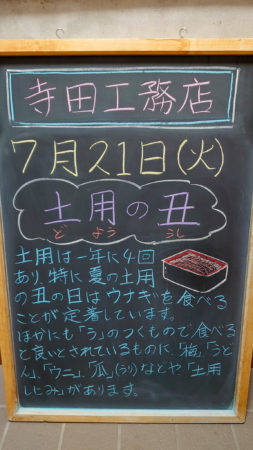 寺田工務店
7月21日(火)
土用の丑
どよう うし
土用は一年に4回
あり、特に夏の土用
の丑の日はウナギを食べる
ことが定着しています。
ほかにも「う」のつくもので食べる
と良いとされているものに、「梅」「うど
ん」、「ウニ」、「瓜」(うり)などや「土用
しじみ」があります。